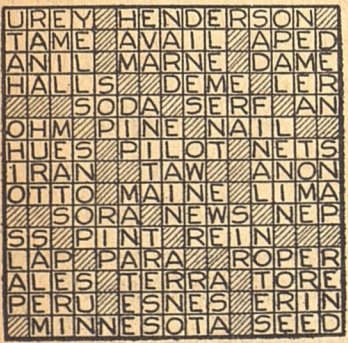 UREY HENDERSON
TAME AVAIL APED
ANIL MARNE DAME
HALLS DEME LER
SODA SERF AN
OHM PINE NAIL
HUES PILOT NETS
IRAN TAW ANON
OTTO MAINE LIMA
SORA NEWS NEP
SS PINT REIN
LAP PARA ROPER
ALES TERRA TORE
PERU ESNES ERIN
MINNESOTA SEED